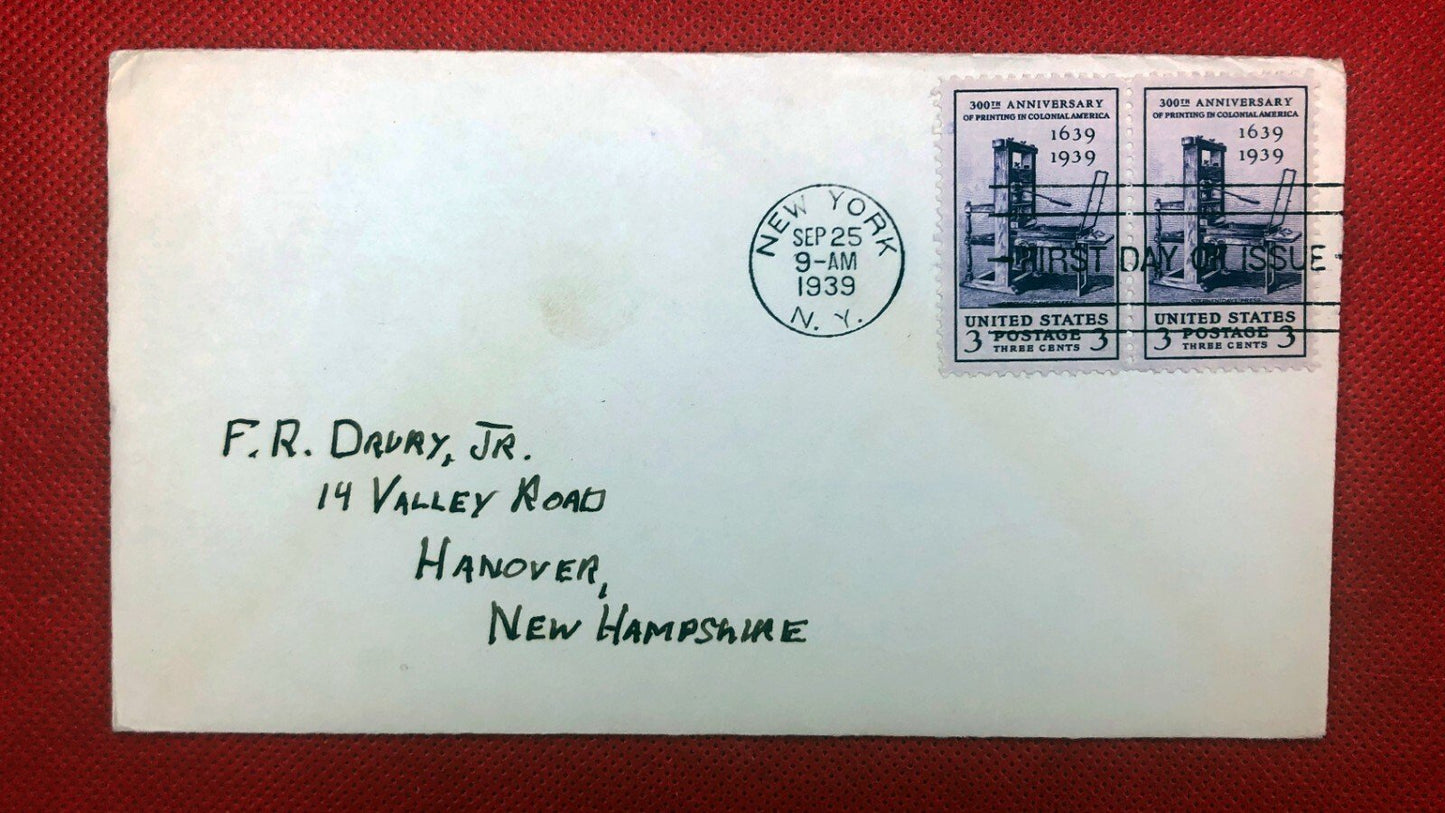 300TH ANNIVERSARY
OF PRINTING IN COLONIAL AMERICA
1639
1939
UNITED STATES
3 POSTAGE 3
THREE CENTS
300TH ANNIVERSARY
OF PRINTING IN COLONIAL AMERICA
1639
1939
UNITED STATES
3 POSTAGE 3
THREE CENTS
NEW YORK
SEP 25
9-AM
1939
N. Y.
FIRST DAY OF ISSUE
F. R. DRURY, JR.
14 VALLEY ROAD
HANOVER,
NEW HAMPSHIRE